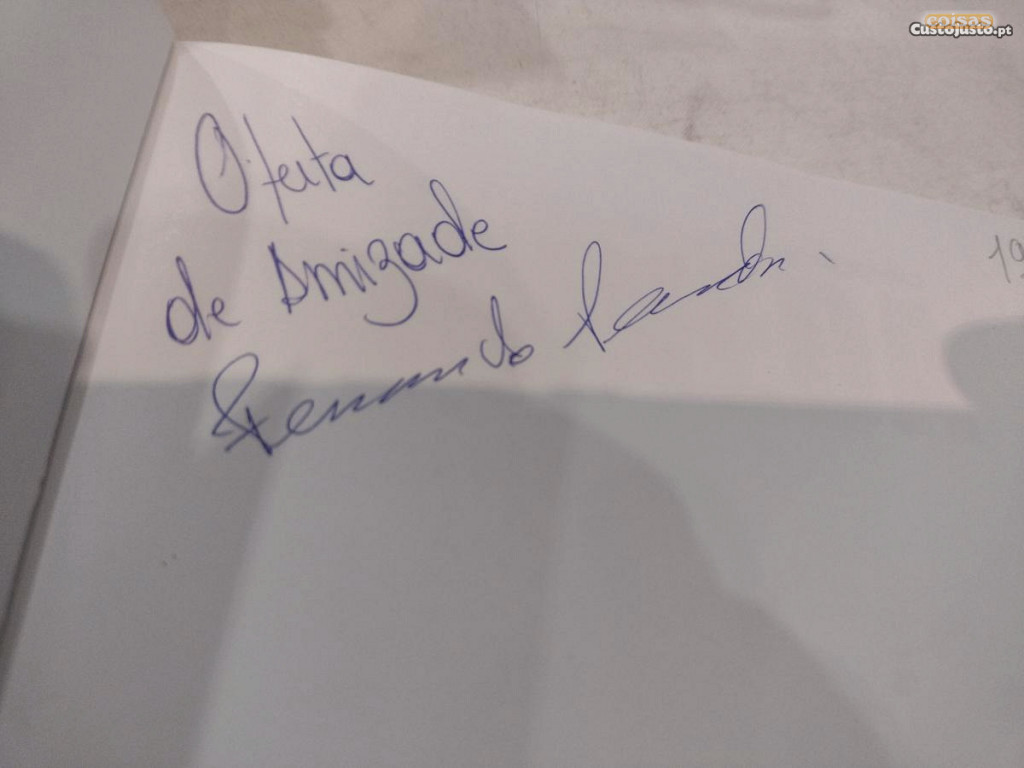 coisas
Custojusto.pt
Oferta
de Amizade
Fernando